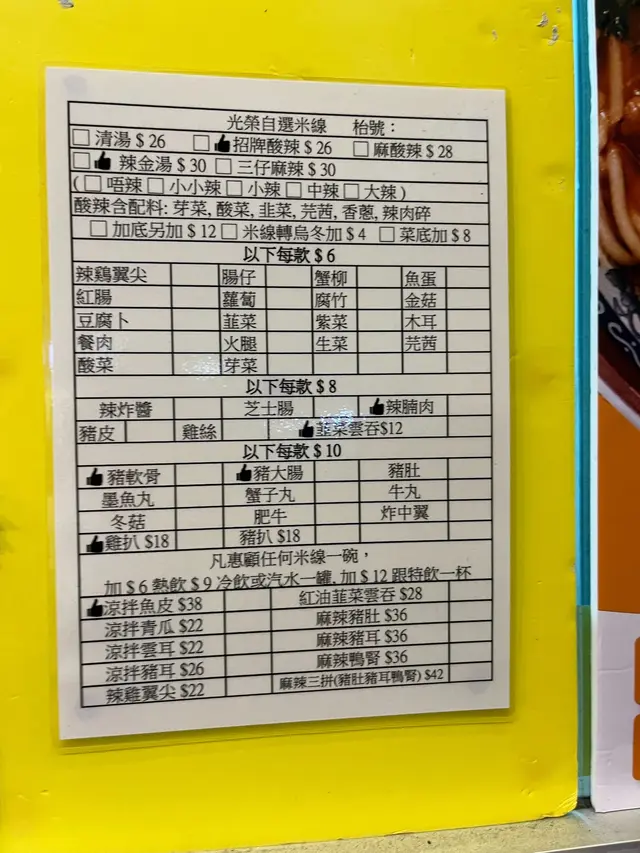 光榮自選米線 枱號：
□ 清湯 $ 26 □ 招牌酸辣 $ 26 □ 麻酸辣 $ 28
□ 辣金湯 $ 30 □ 三仔麻辣 $ 30
( □ 唔辣 □ 小小辣 □ 小辣 □ 中辣 □ 大辣 )
酸辣含配料: 芽菜, 酸菜, 韭菜, 芫茜, 香蔥, 辣肉碎
□ 加底另加 $ 12 □ 米線轉烏冬加 $ 4 □ 菜底加 $ 8
以下每款 $ 6
辣鷄翼尖 腸仔 蟹柳 魚蛋
紅腸 蘿蔔 腐竹 金菇
豆腐卜 韮菜 紫菜 木耳
餐肉 火腿 生菜 芫茜
酸菜 芽菜
以下每款 $ 8
辣炸醬 芝士腸 辣腩肉
豬皮 雞絲 韮菜雲吞$12
以下每款 $ 10
豬軟骨 豬大腸 豬肚
墨魚丸 蟹子丸 牛丸
冬菇 肥牛 炸中翼
雞扒 $18 豬扒 $18
凡惠顧任何米線一碗，
加 $ 6 熱飲 $ 9 冷飲或汽水一罐, 加 $ 12 跟特飲一杯
涼拌魚皮 $38 紅油韮菜雲吞 $28
涼拌青瓜 $22 麻辣豬肚 $36
涼拌雲耳 $22 麻辣豬耳 $36
涼拌豬耳 $26 麻辣鴨腎 $36
辣雞翼尖 $22 麻辣三拼(豬肚豬耳鴨腎) $42